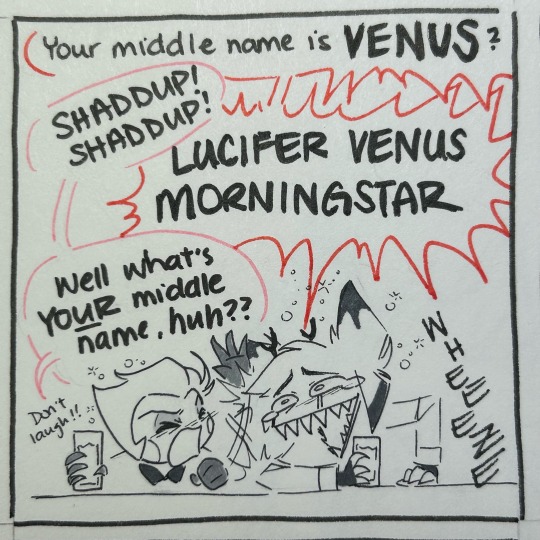 Your middle name is VENUS?
SHADDUP!
SHADDUP!
LUCIFER VENUS
MORNINGSTAR
Well what's
YOUR middle
name, huh??
Don't
laugh!!
WHEEEZE